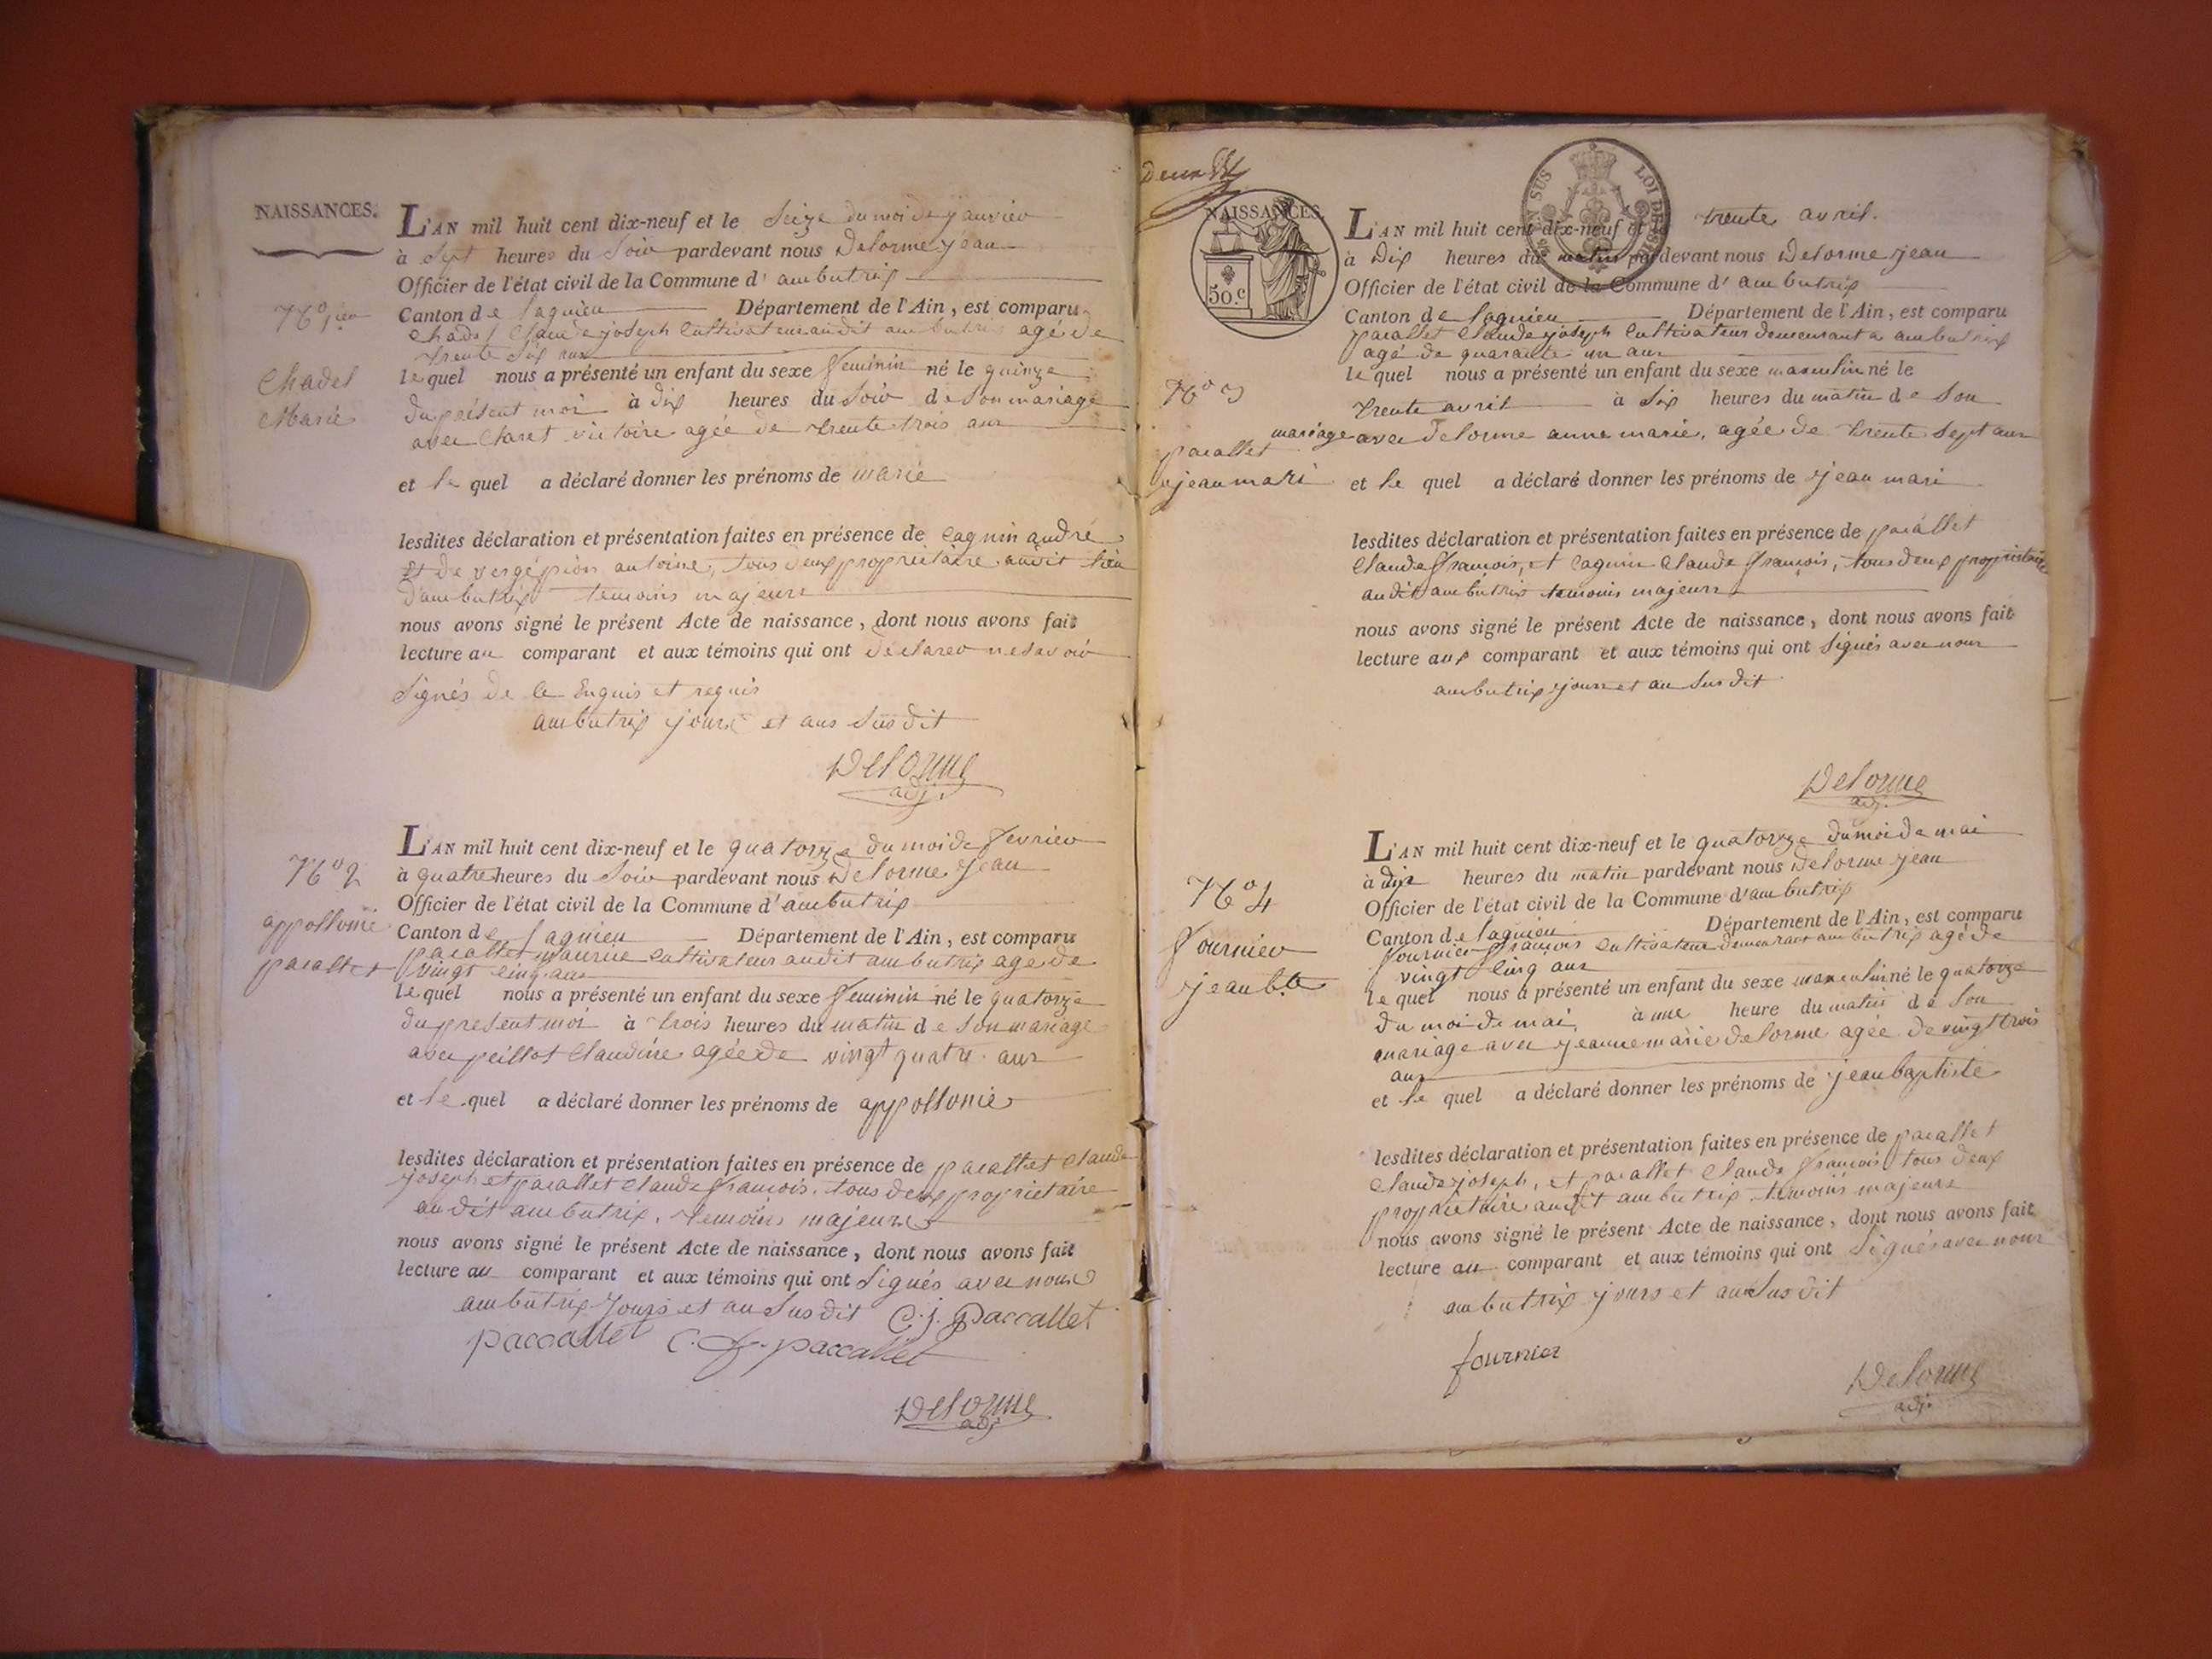 NAISSANCES.
L'AN mil huit cent dix-neuf et le Seize du moi de janvier
à Sept heures du Soir pardevant nous Delorme jean
Officier de l'état civil de la Commune d'ambutrix
Canton de lagnieu Département de l'Ain, est comparu
Chadel Claude joseph Cultivateur audit ambutrix agé de
trente Six ans
lequel nous a présenté un enfant du sexe feminin né le quinze
du présent moi à dix heures du Soir de Son mariage
avec Claret victoire agée de trente trois ans
et le quel a déclaré donner les prénoms de marie
lesdites déclaration et présentation faites en présence de Cagnin andré
et de vergépion antoine, tous deux proprietaire audit lieu
d'ambutrix temoins majeurs
nous avons signé le présent Acte de naissance, dont nous avons fait
lecture au comparant et aux témoins qui ont déclarer ne savoir
Signés de ce Enquis et requis
ambutrix jours et ans Susdit
Delorme
adj.
Chadel
Marie
No 2
appollonie
pacallet
L'AN mil huit cent dix-neuf et le quatorze du moi de fevrier
à quatre heures du Soir pardevant nous Delorme jean
Officier de l'état civil de la Commune d'ambutrix
Canton de lagnieu Département de l'Ain, est comparu
pacallet maurice Cultivateur audit ambutrix age de
vingt Cinq ans
lequel nous a présenté un enfant du sexe feminin né le quatorze
du present moi à trois heures du matin de Son mariage
avec peillot Claudine agée de vingt quatre ans
et le quel a déclaré donner les prénoms de appollonie
lesdites déclaration et présentation faites en présence de pacallet Claude
joseph et pacallet Claude françois, tous deux proprietaire
audit ambutrix, temoins majeurs
nous avons signé le présent Acte de naissance, dont nous avons fait
lecture au comparant et aux témoins qui ont Signés avec nous
ambutrix jours et an Susdit C. j. Paccallet
paccallet C. f. paccallet
Delorme
adj
deux
NAISSANCES.
50.c
EN SUS
LOI DE 1816
L'AN mil huit cent dix-neuf et le trente avril.
à dix heures du matin pardevant nous Delorme jean
Officier de l'état civil de la Commune d'ambutrix
Canton de lagnieu Département de l'Ain, est comparu
pacallet Claude joseph Cultivateur demeurant a ambutrix
agé de quarante un ans
lequel nous a présenté un enfant du sexe masculin né le
trente avril à Six heures du matin de Son
mariage avec Delorme anne marie, agée de trente Sept ans
et le quel a déclaré donner les prénoms de jean mari
lesdites déclaration et présentation faites en présence de pacallet
Claude françois, et Cagnin Claude françois, tous deux proprietaire
audit ambutrix temoins majeurs
nous avons signé le présent Acte de naissance, dont nous avons fait
lecture aux comparant et aux témoins qui ont Signés avec nous
ambutrix jours et an Susdit
Delorme
adj.
No 3
pacallet
jean mari
No 4
fournier
jean bte
L'AN mil huit cent dix-neuf et le quatorze du moi de mai
à dix heures du matin pardevant nous Delorme jean
Officier de l'état civil de la Commune d'ambutrix
Canton de lagnieu Département de l'Ain, est comparu
fournier françois Cultivateur demeurant ambutrix agé de
vingt Cinq ans
lequel nous a présenté un enfant du sexe masculin né le quatorze
du moi de mai, à une heure du matin de Son
mariage avec jeanne marie Delorme agée de vingt trois
ans
et le quel a déclaré donner les prénoms de jean baptiste
lesdites déclaration et présentation faites en présence de pacallet
Claude joseph, et pacallet Claude françois tous deux
proprietaire audit ambutrix temoins majeurs
nous avons signé le présent Acte de naissance, dont nous avons fait
lecture au comparant et aux témoins qui ont Signés avec nous
ambutrix jours et an Susdit
fournier
Delorme
adj.